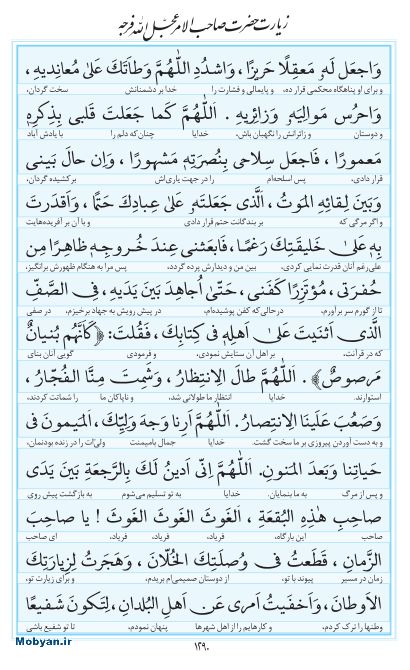 زیارت حضرت صاحب الامر عجل الله فرجه
وَاجعَل لَهُ مَعقِلًا حَرِيزًا، وَاشدُدِ اللّٰهُمَّ وَطأَتَكَ عَلىٰ مُعانِديهِ،
و برای او پناهگاه محکمی قرار ده، و پایمالی و فشارت را خدا بر دشمنانش سخت گردان،
وَاحرُس مَوالِيَهُ وَزائِريهِ. اَللّٰهُمَّ كَما جَعَلتَ قَلبي بِذِكرِهِ
و دوستان و زائرانش را نگهبان باش. خدایا چنان‌که دلم را با یادش آباد
مَعمورًا، فَاجعَل سِلاحي بِنُصرَتِهِ مَشهورًا، وَاِن حالَ بَيني
قرار دادی، پس اسلحه‌ام را در جهت یاری‌اش برکشیده گردان،
وَبَينَ لِقائِهِ المَوتُ، الَّذي جَعَلتَهُ عَلىٰ عِبادِكَ حَتمًا، وَاَقدَرتَ
و اگر مرگی که بر بندگانت حتم قرار دادی و با آن بر آفریده‌هایت
بِهِ عَلىٰ خَليقَتِكَ رَغمًا، فَابعَثني عِندَ خُروجِهِ ظاهِرًا مِن
علی‌رغم آنان قدرت نمایی کردی، بین من و دیدارش پرده گردد، پس مرا به هنگام ظهورش برانگیز،
حُفرَتي، مُؤتَزِرًا كَفَني، حَتّىٰ اُجاهِدَ بَينَ يَدَيهِ، فِي الصَّفِّ
تا از گورم سر برآورم، درحالی که کفن پوشیده‌ام، در پیش رویش به جهاد برخیزم، در صفی
الَّذي اَثنَيتَ عَلىٰ اَهلِهِ في كِتابِكَ، فَقُلتَ: ﴿كَأَنَّهُم بُنيانٌ
که در قرآنت، بر اهل آن ستایش نمودی، و فرمودی گویی آنان بنای
مَرصوصٌ﴾. اَللّٰهُمَّ طالَ الاِنتِظارُ، وَشَمِتَ مِنَّا الفُجّارُ،
استوارند. خدایا انتظار ما طولانی شد، و ناپاکان ما را شماتت کردند،
وَصَعُبَ عَلَينَا الاِنتِصارُ. اَللّٰهُمَّ اَرِنا وَجهَ وَلِيِّكَ، المَيمونَ في
و به دست آوردن پیروزی بر ما سخت گشت. خدایا جمال بامیمنت ولی‌ات را در زنده بودنمان،
حَياتِنا وَبَعدَ المَنونِ. اَللّٰهُمَّ اِنّي اَدينُ لَكَ بِالرَّجعَةِ بَينَ يَدَي
و پس از مرگ به ما بنمایان. خدایا به تو تسلیم می‌شوم به بازگشت پیش روی
صاحِبِ هٰذِهِ البُقعَةِ، الغَوثَ الغَوثَ الغَوثَ! يا صاحِبَ
این بارگاه، فریاد، فریاد، فریاد، ای صاحب
الزَّمانِ، قَطَعتُ في وُصلَتِكَ الخُلّانَ، وَهَجَرتُ لِزِيارَتِكَ
زمان در مسیر پیوند با تو، از دوستان صمیمی‌ام بریدم، و برای زیارت تو،
الاَوطانَ، وَاَخفَيتُ اَمري عَن اَهلِ البُلدانِ، لِتَكونَ شَفيعًا
وطنها را ترک کردم، و کارهایم را از اهل شهرها پنهان نمودم، تا تو شفیع باشی
۱۲۹۰
Mobyan.ir